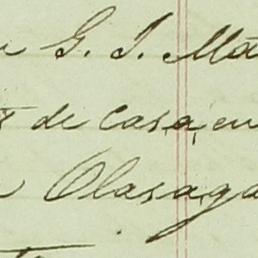 G. I. Ma
de casa, en
Olasaga